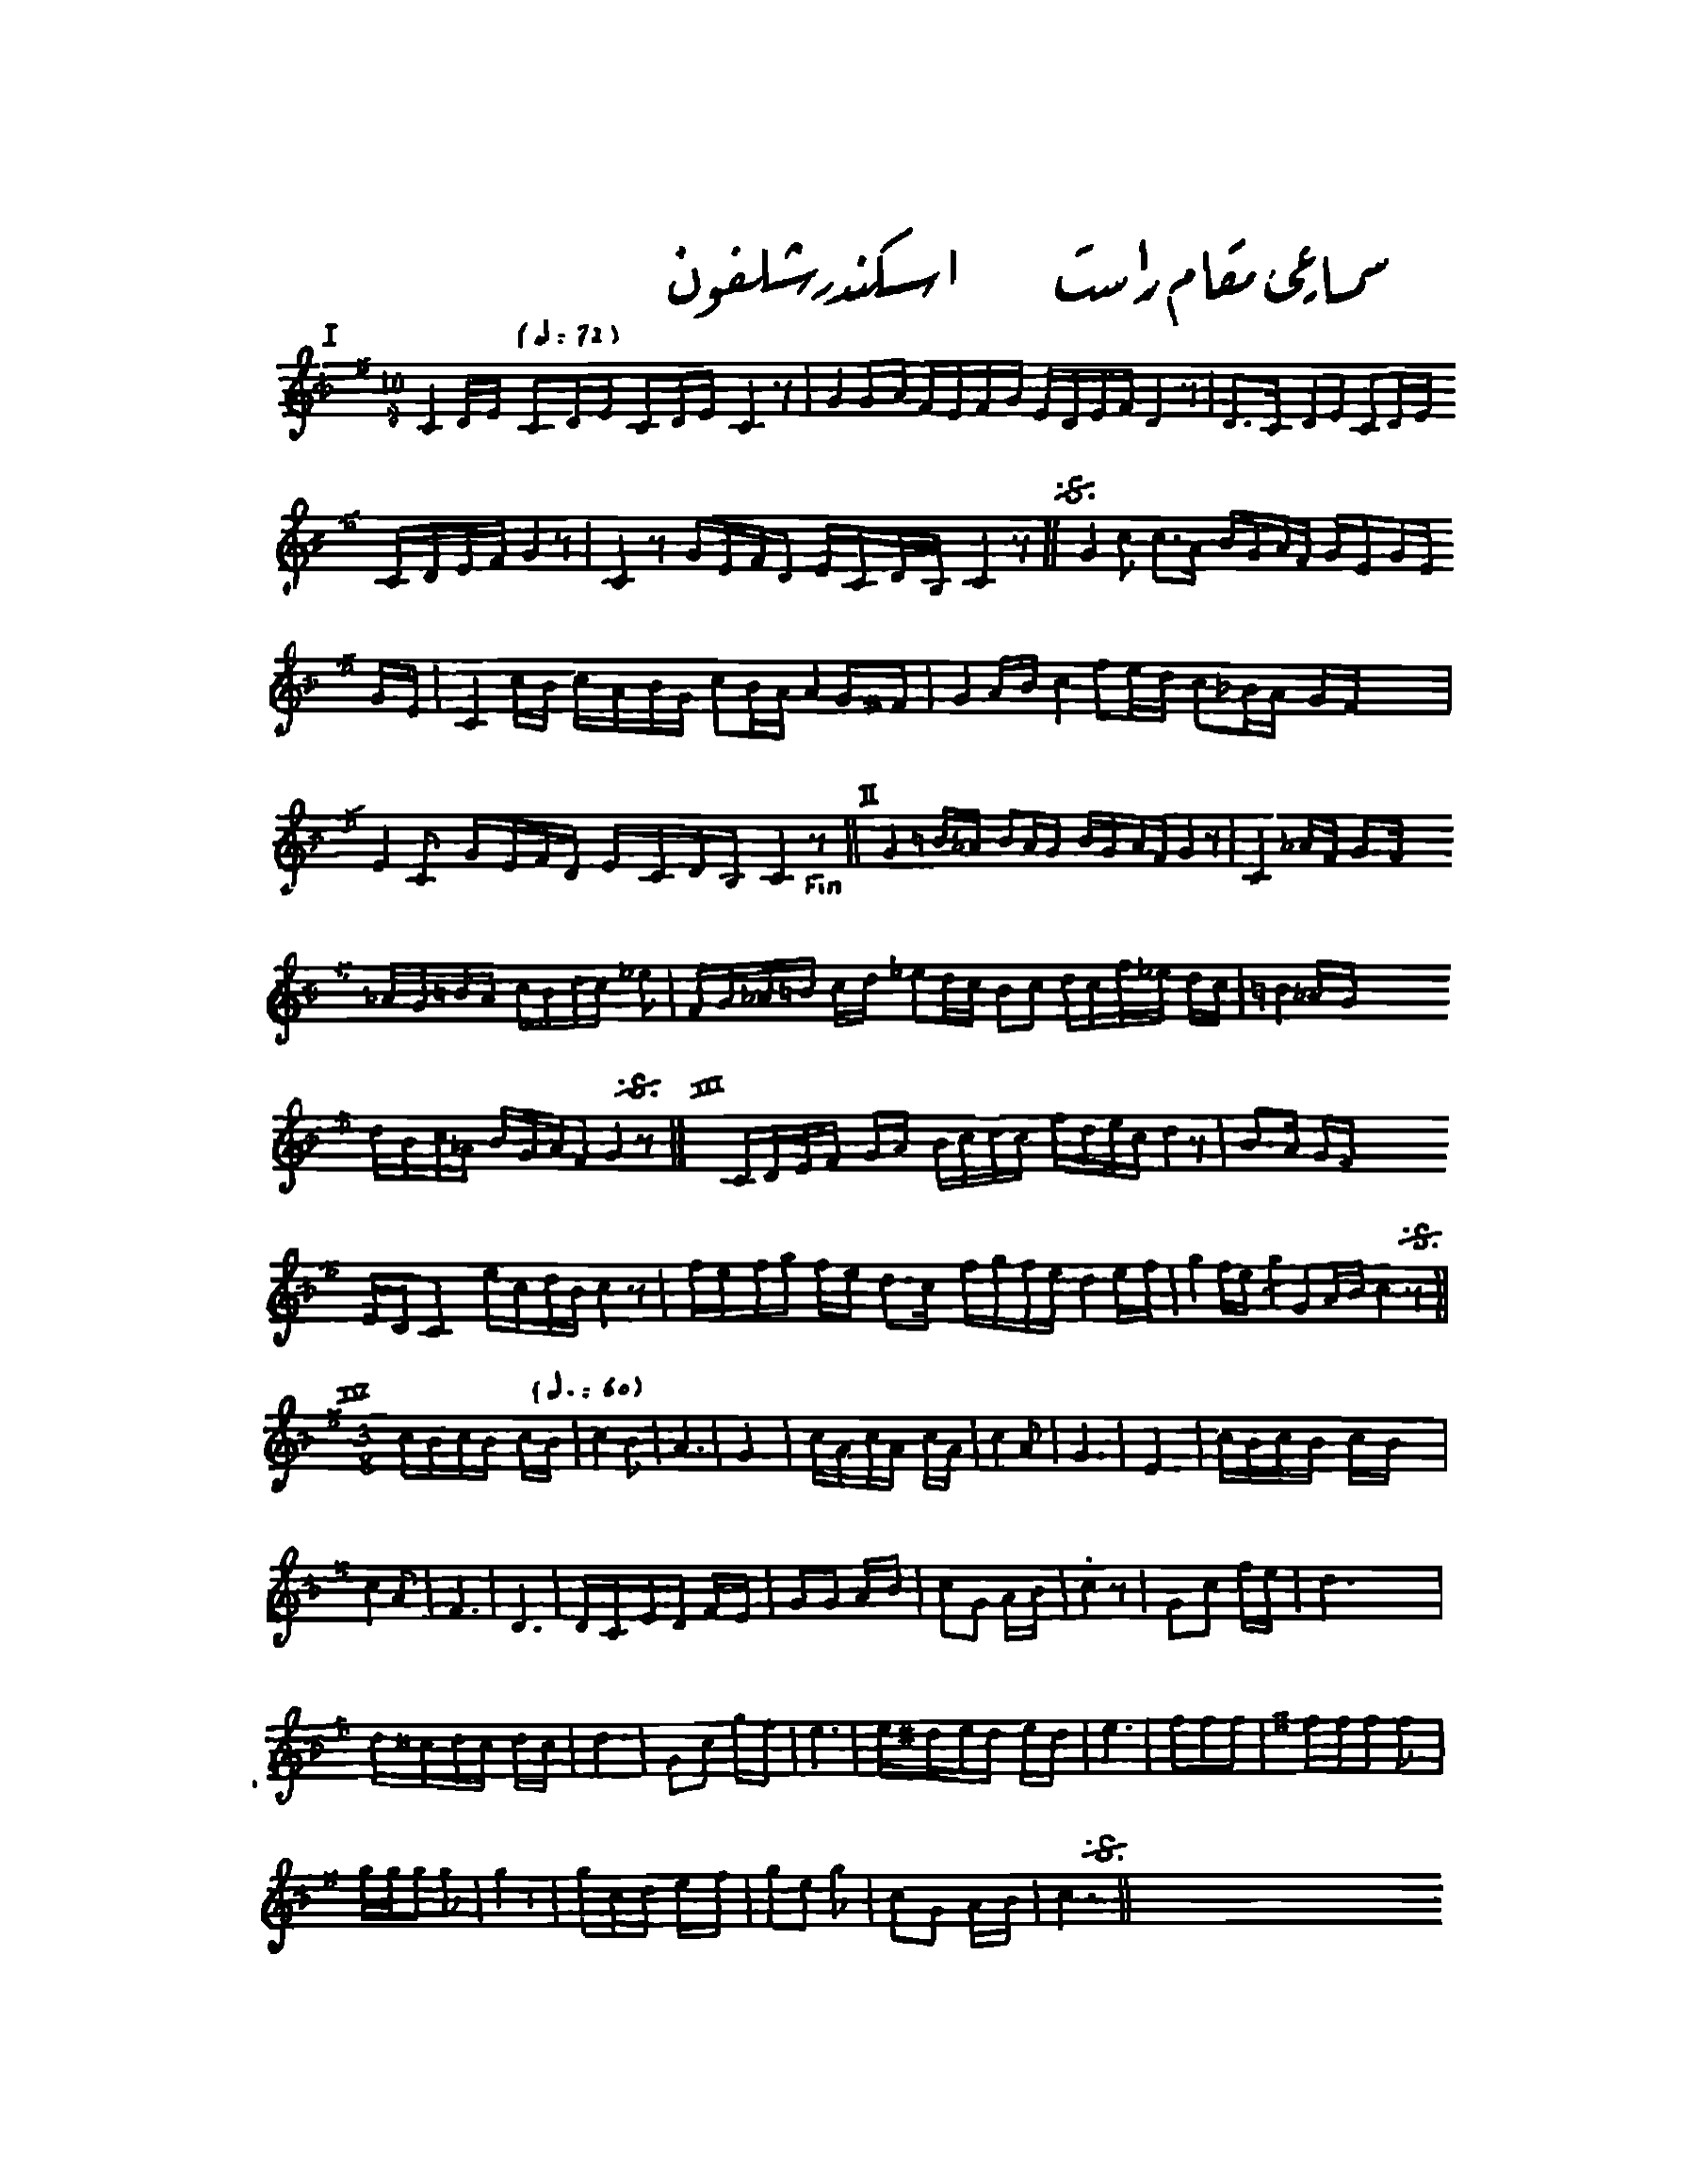 سماعي مقام راست اسكندر شلفون
I (♩ = 72)
Fin II
III
IV (♩. = 60)
3
8